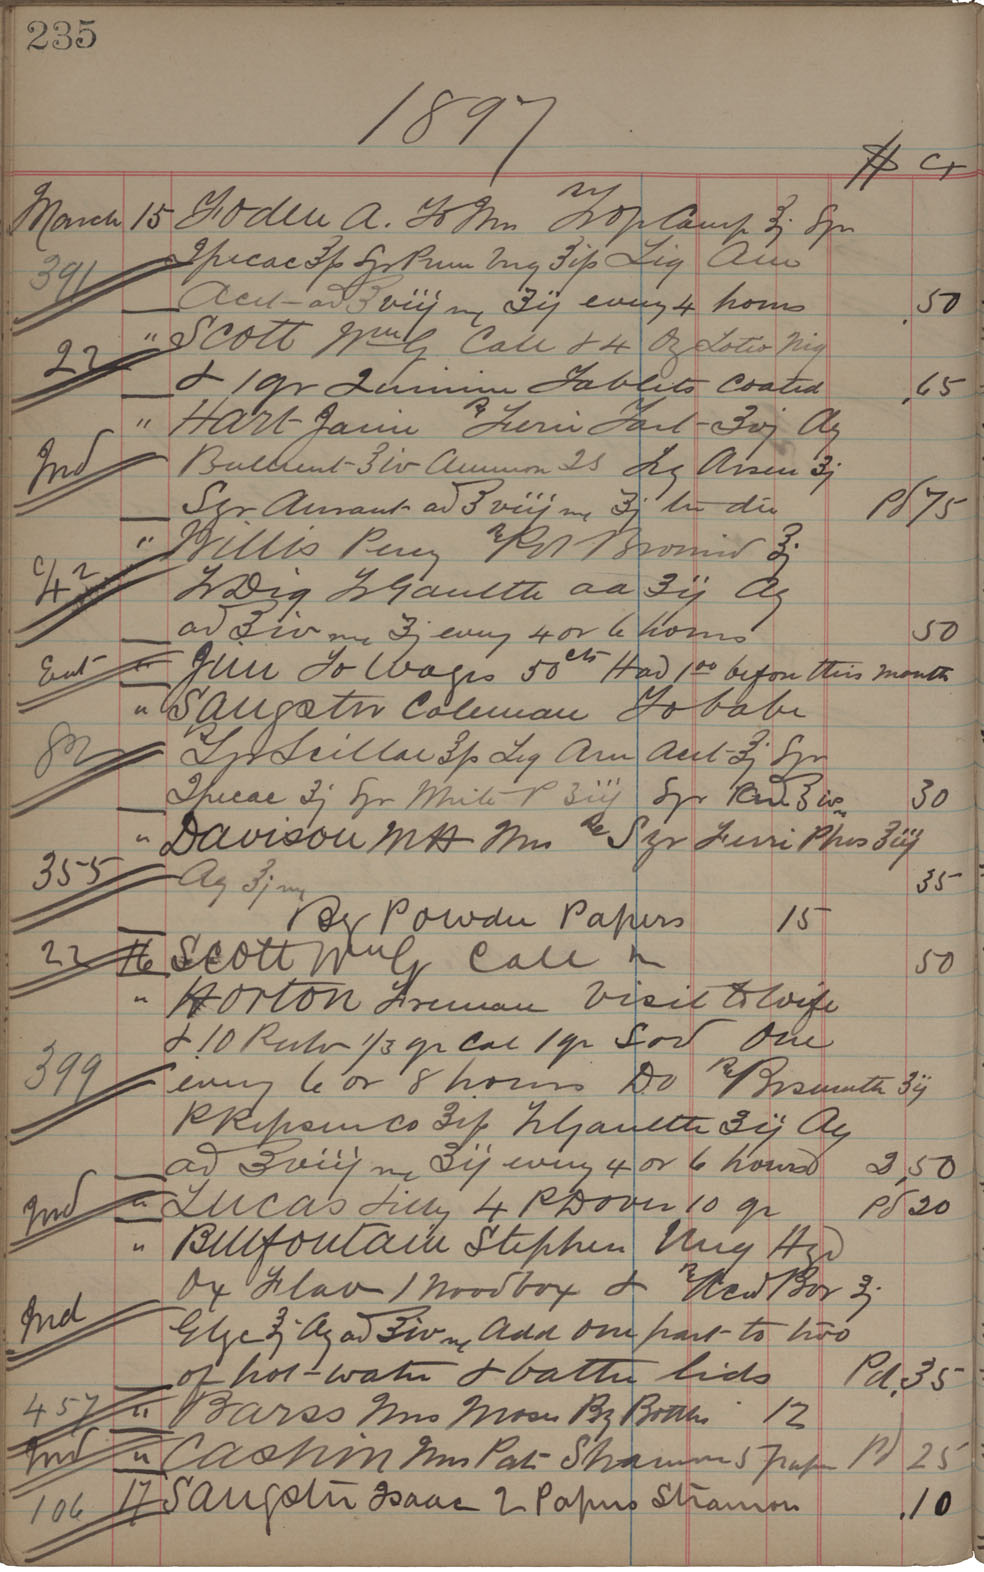 235
1897
$ Ct
March 15 Foden A. To Mrs Tr Op Camp ʒj Syr
391 Ipecac ʒfs Syr Prun Virg ʒifs Liq Am
Acet ad ℥viij ʒij every 4 hours .50
22 " Scott Wm G Call & 4 Oz Lotio Nig
& 1 gr Quinine Tablets Coated .65
" Hart Jain ℞ Ferri Tart ʒvj Aq
Ind Bullient ℥iv Ammon 2s Liq Arsen ʒj
Syr Aurant ad ℥viij ʒj ter die Pd 75
" Willis Percy ℞ Pot Bromid ʒj
C/42 Tr Dig Tr Gaulth aa ʒij Aq
ad ℥iv ʒj every 4 or 6 hours 50
Ent " Jim To Wages 50 cts Had 1 00 before this month
" Sangster Coleman To babe
82 Syr Scillae ʒfs Liq Am Acet ʒj Syr
Ipecac ʒj Syr White P ʒiij Syr Rud ℥iv 30
" Davison M H Mrs ℞ Syr Ferri Phos ʒiij
355 Aq ℥j 35
By Powder Papers 15
22 16 Scott Wm G Call 50
" Horton Freeman Visit to Wife
& 10 Pulv 1/3 gr Cal 1 gr Sod One
399 every 6 or 8 hours Do ℞ Bismuth ʒij
P Pepsin co ʒifs Tr Gaulth ʒij Aq
ad ℥viij ʒij every 4 or 6 hours 2,50
Ind " Lucas Lilly 4 P Dover 10 gr Pd 20
" Bellfontain Stephen Ung Hyd
Ox Flav 1 Woodbox & ℞ Acid Bor ʒj
Ind Glyc ʒj Aq ad ℥iv Add one part to two
of hot water & bathe lids Pd .35
457 " Barss Mrs Moses By Bottles 12
Ind " Cashin Mrs Pat Stramon 5 pap Pd 25
106 17 Sangster Isaac 2 Papers Stramon .10